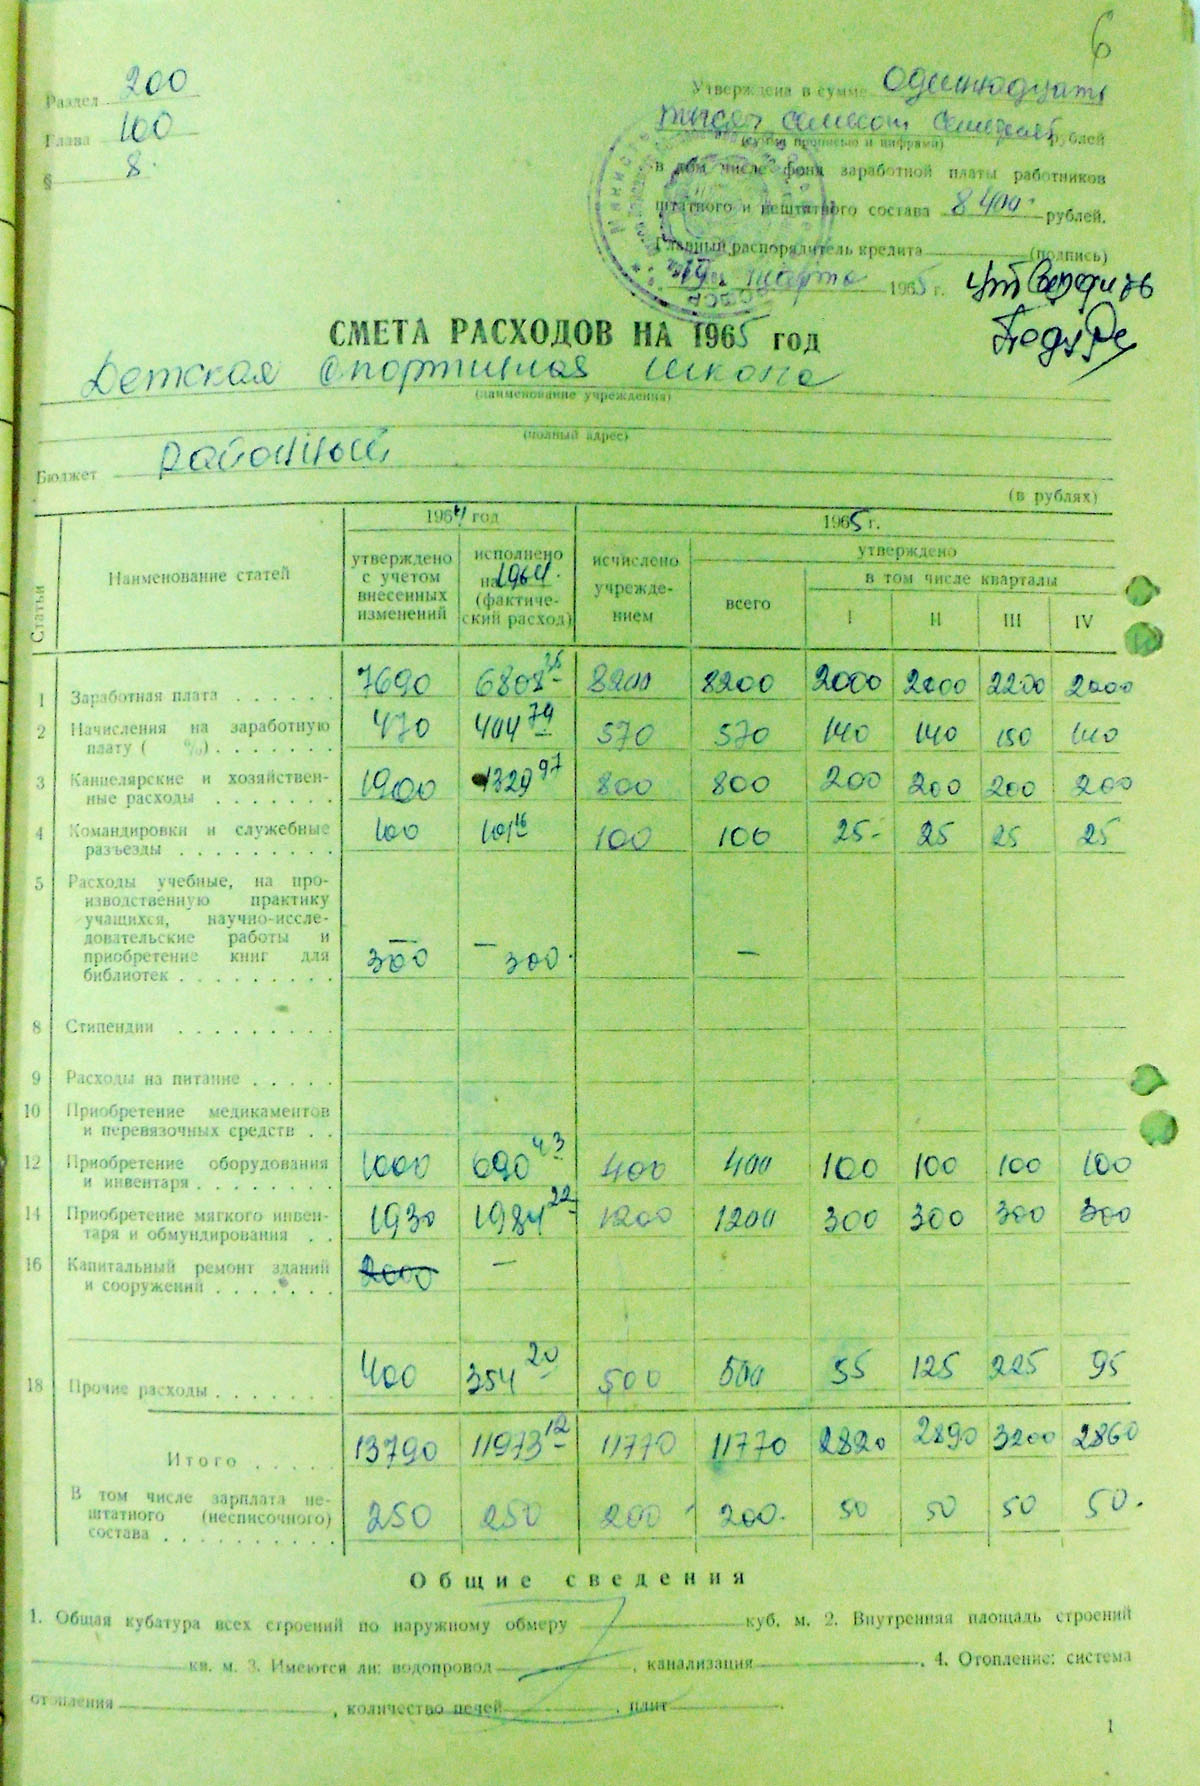 6
Раздел 200
Глава 100
§ 8
Утверждена в сумме одиннадцать
тысяч семьсот семьдесят рублей
(сумма прописью и цифрами)
в том числе фонд заработной платы работников
штатного и нештатного состава 8400 рублей.
Главный распорядитель кредита (подпись)
19 марта 1965 г.
СМЕТА РАСХОДОВ НА 1965 год
Детская спортивная школа
(наименование учреждения)
(полный адрес)
Бюджет районный
(в рублях)
Статьи
Наименование статей
1964 год
1965 г.
утверждено с учетом внесенных изменений
исполнено на 1964. (фактический расход)
исчислено учрежде-нием
утверждено
всего
в том числе кварталы
I II III IV
1 Заработная плата 7690 6808 36 8200 8200 2000 2000 2200 2000
2 Начисления на заработную
плату ( %) 470 404 79 570 570 140 140 150 140
3 Канцелярские и хозяйствен-
ные расходы 1900 1329 97 800 800 200 200 200 200
4 Командировки и служебные
разъезды 100 101 16 100 100 25- 25 25 25
5 Расходы учебные, на про-
изводственную практику
учащихся, научно-иссле-
довательские работы и
приобретение книг для
библиотек 300 300. —
8 Стипендии
9 Расходы на питание
10 Приобретение медикаментов
и перевязочных средств
12 Приобретение оборудования
и инвентаря 1000 690 43 400 400 100 100 100 100
14 Приобретение мягкого инвен-
таря и обмундирования 1930 1984 22 1200 1200 300 300 300 300
16 Капитальный ремонт зданий
и сооружений 2000 —
18 Прочие расходы 400 354 20 500 500 55 125 225 95
Итого 13790 11973 12 11770 11770 2820 2890 3200 2860
В том числе зарплата не-
штатного (несписочного)
состава 250 250 200 200. 50 50 50 50.
Общие сведения
1. Общая кубатура всех строений по наружному обмеру куб. м. 2. Внутренняя площадь строений
кв. м. 3. Имеются ли: водопровод , канализация . 4. Отопление: система
отопления , количество печей , плит .
1